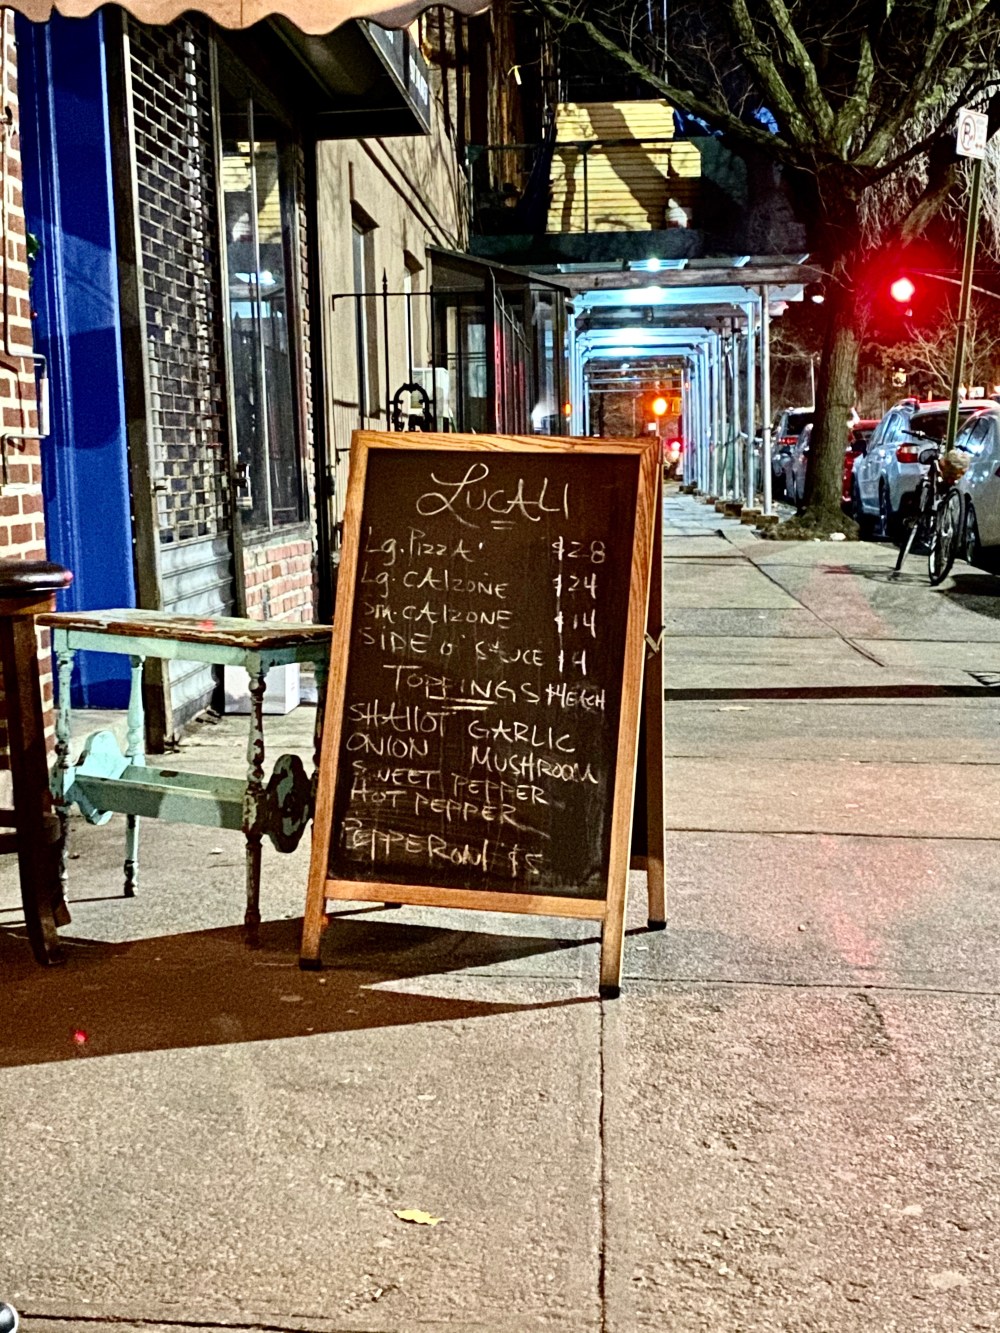 LUCALI
Lg. PIZZA' $28
Lg. CALZONE $24
Sm. CALZONE $14
SIDE O' SAUCE $4
TOPPINGS $4 EACH
SHALLOT GARLIC
ONION MUSHROOM
SWEET PEPPER
HOT PEPPER
PEPPERONI $5